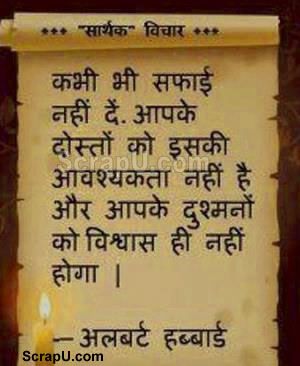 *** "सार्थक" विचार ***
कभी भी सफाई
नहीं दें. आपके
दोस्तों को इसकी
आवश्यकता नहीं है
और आपके दुश्मनों
को विश्वास ही नहीं
होगा |
—अलबर्ट हब्बार्ड
ScrapU.com
ScrapU.com